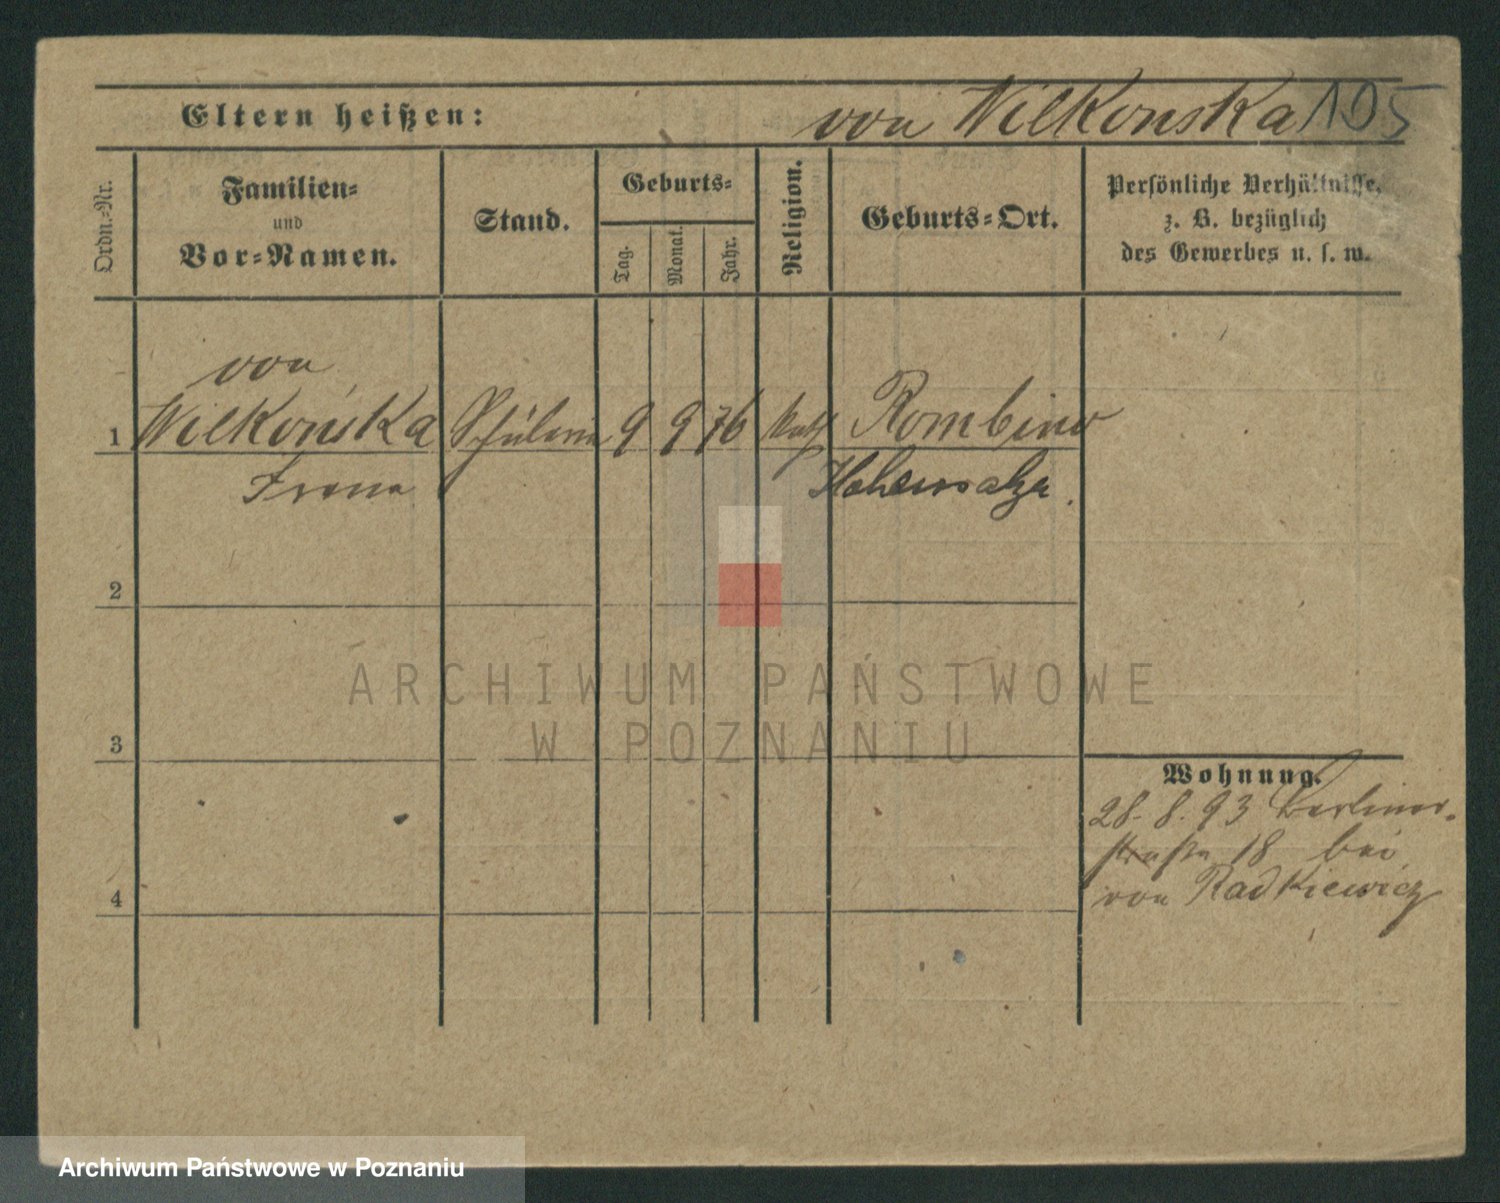 Eltern heißen: von Wilkonska 105
Ordn.-Nr.
Familien-
und
Vor-Namen.
Stand.
Geburts-
Tag.
Monat.
Jahr.
Religion.
Geburts-Ort.
Persönliche Verhältnisse,
z. B. bezüglich
des Gewerbes u. s. w.
von
1 Wilkońska Schülerin 9 9 76 kath Rombino
Irena Hohensalza.
2
3
4
Wohnung.
28. 8. 93 Berliner-
straße 18 bei
von Radkiewicz
ARCHIWUM PAŃSTWOWE
W POZNANIU
Archiwum Państwowe w Poznaniu